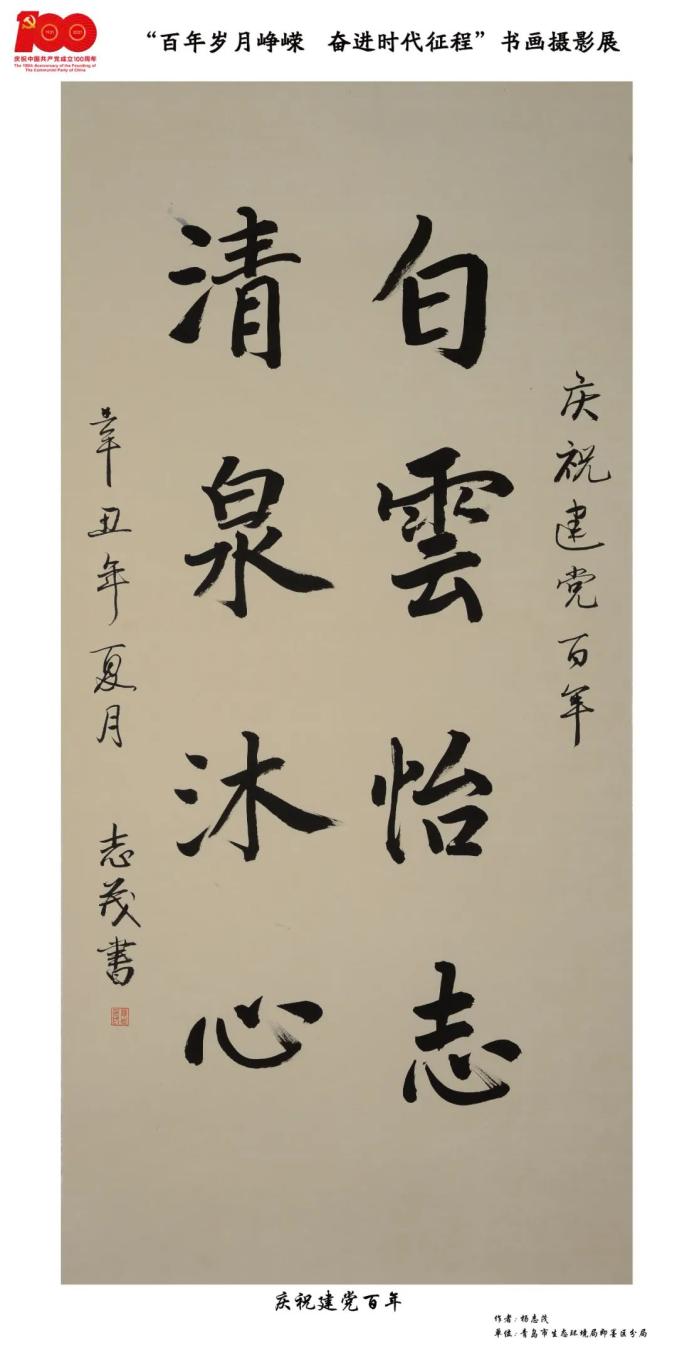 100
1921
2021
庆祝中国共产党成立100周年
The 100th Anniversary of the Founding of
The Communist Party of China
“百年岁月峥嵘 奋进时代征程”书画摄影展
庆祝建党百年
白雲怡志
清泉沐心
辛丑年夏月 志茂書
庆祝建党百年
作者：杨志茂
单位：青岛市生态环境局即墨区分局